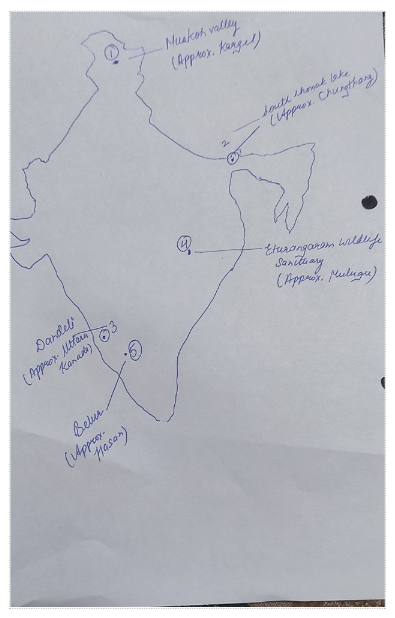 1
Mushkoh valley
(Approx. Kargil)
2
South Lhonak lake
(Approx. Chungthang)
4
Eturangaram wildlife
Sanctuary
(Approx. Mulugu)
3
Dandeli
(Approx. Uttara
Kanada)
5
Belur
(Approx.
Hasan)